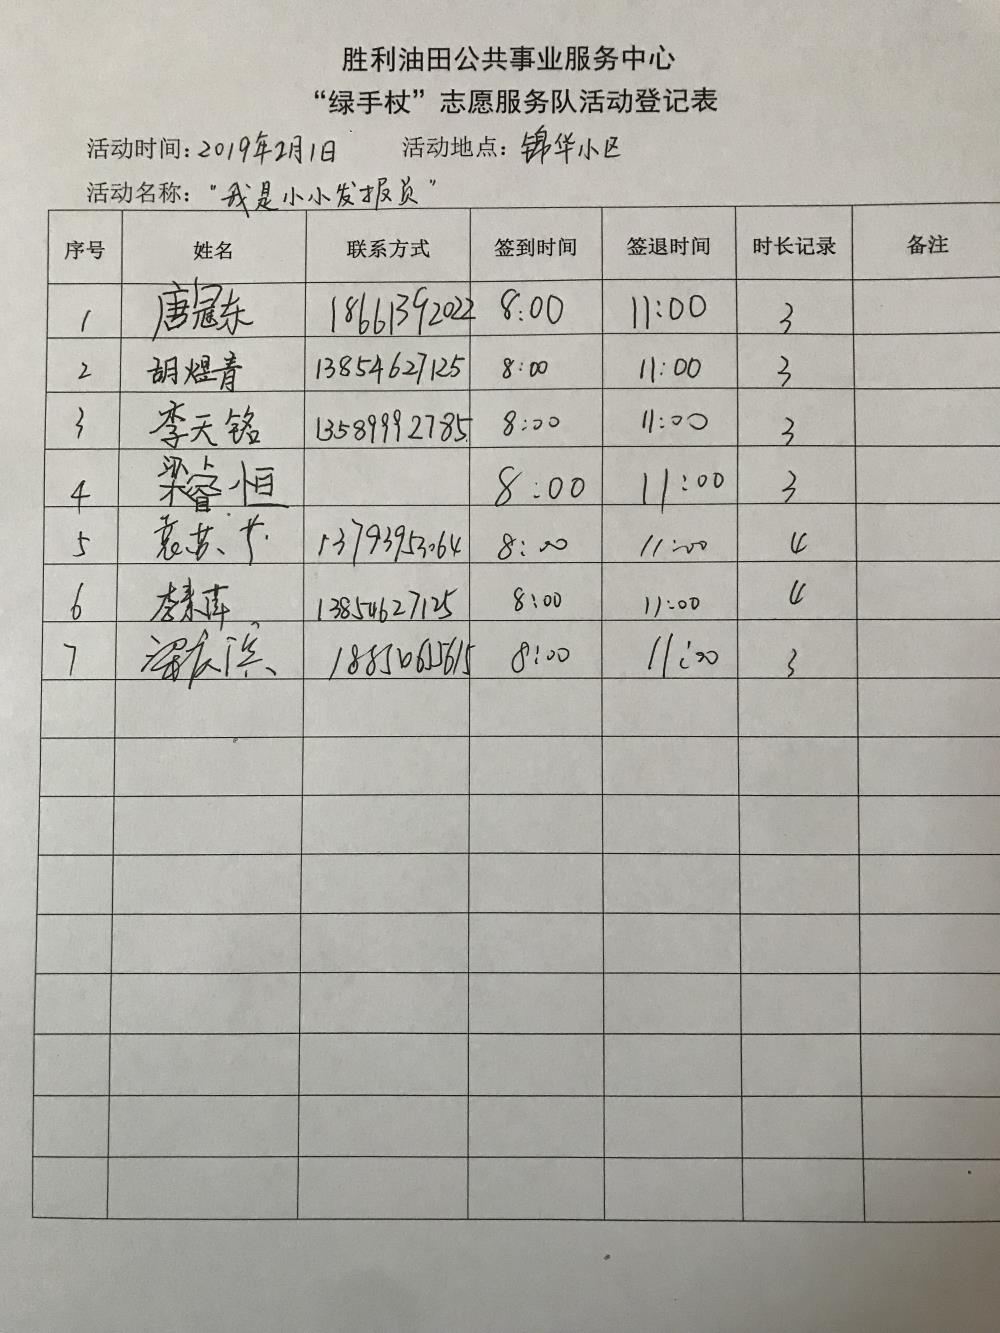 胜利油田公共事业服务中心
“绿手杖”志愿服务队活动登记表
活动时间：2019年2月1日 活动地点：锦华小区
活动名称：“我是小小发报员”
序号 姓名 联系方式 签到时间 签退时间 时长记录 备注
1 唐冠东 18661392022 8:00 11:00 3
2 胡煜青 13854627125 8:00 11:00 3
3 李天铭 13589992785 8:00 11:00 3
4 梁睿恒 8:00 11:00 3
5 13793953064 8:00 11:00 4
6 13854627125 8:00 11:00 4
7 8:00 11:00 3